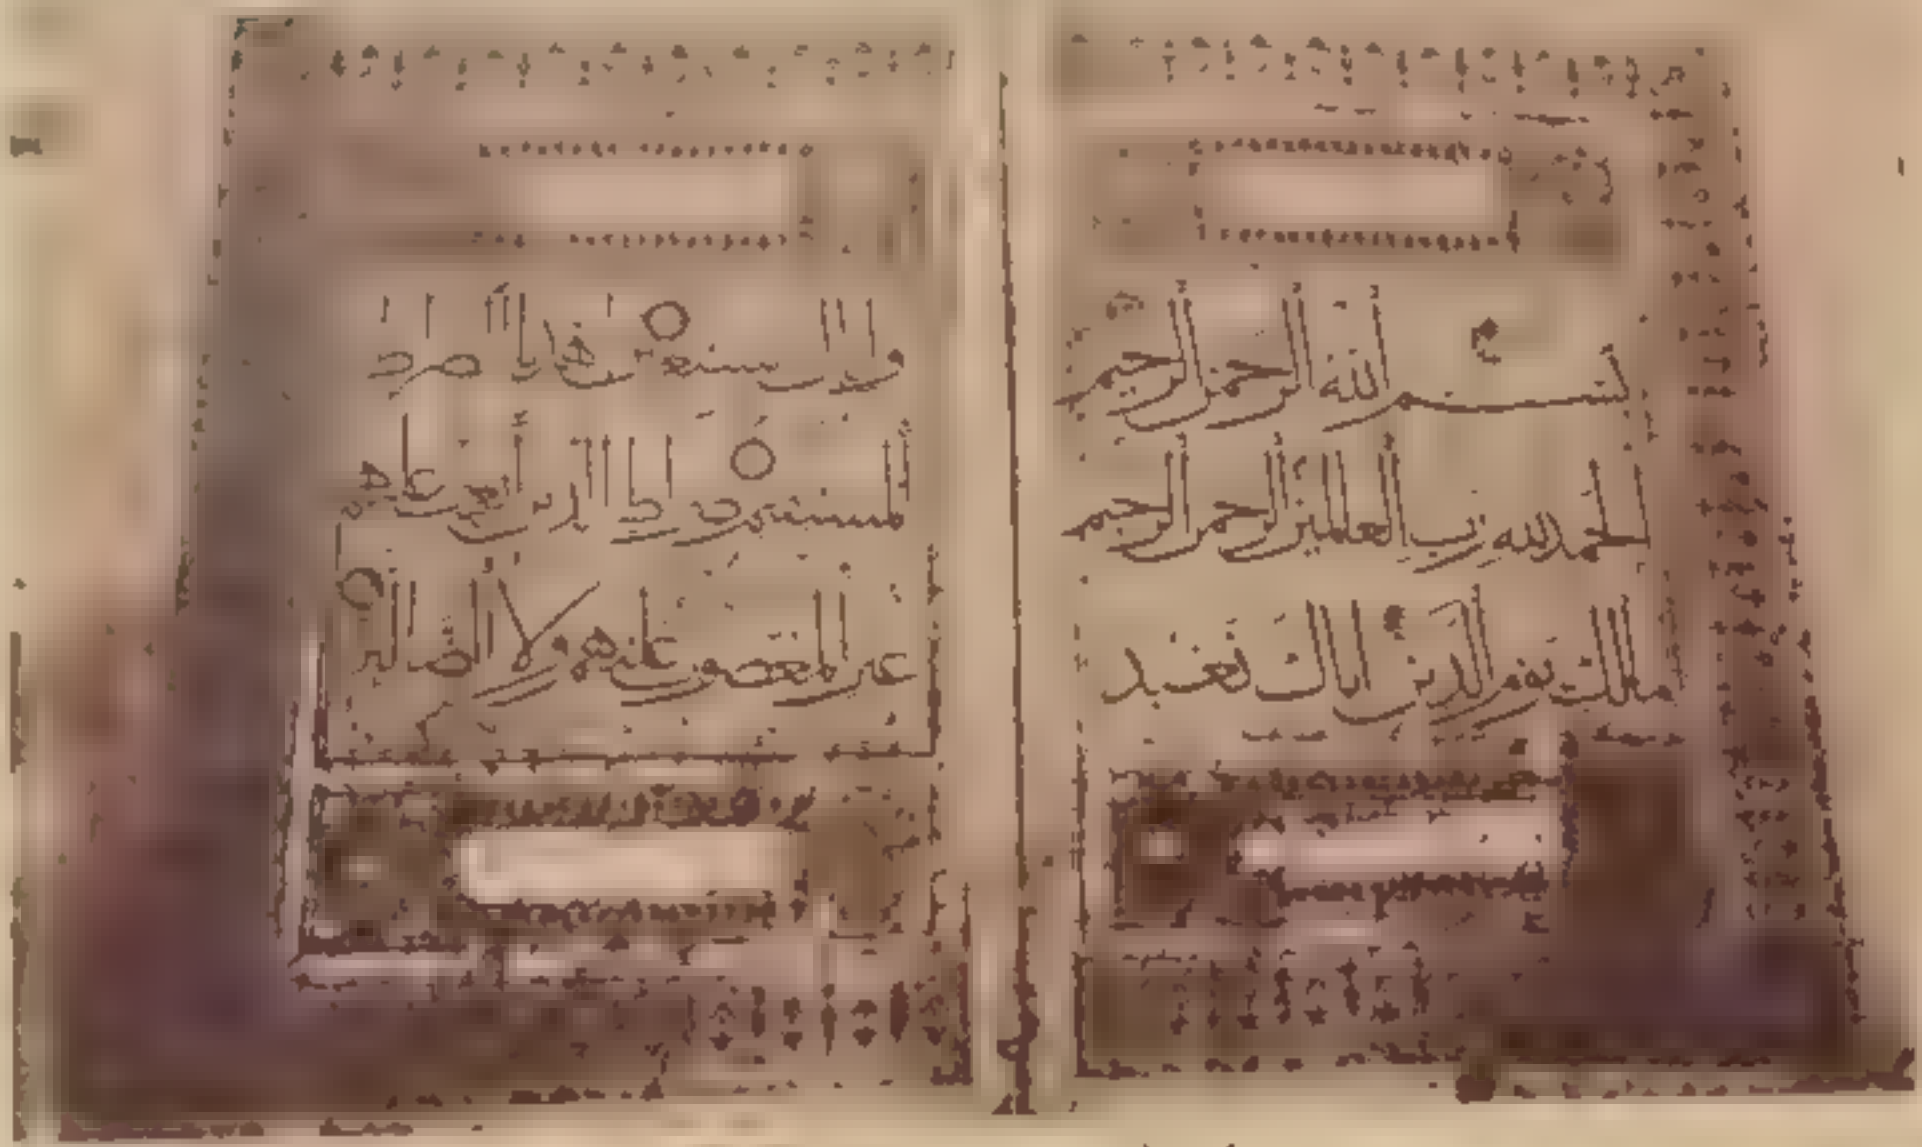 بسم الله الرحمن الرحيم
الحمد لله رب العلمين الرحمن الرحيم
ملك يوم الدين اياك نعبد
واياك نستعين اهدنا الصرط
المستقيم صرط الذين انعمت عليهم
غير المغضوب عليهم ولا الضالين